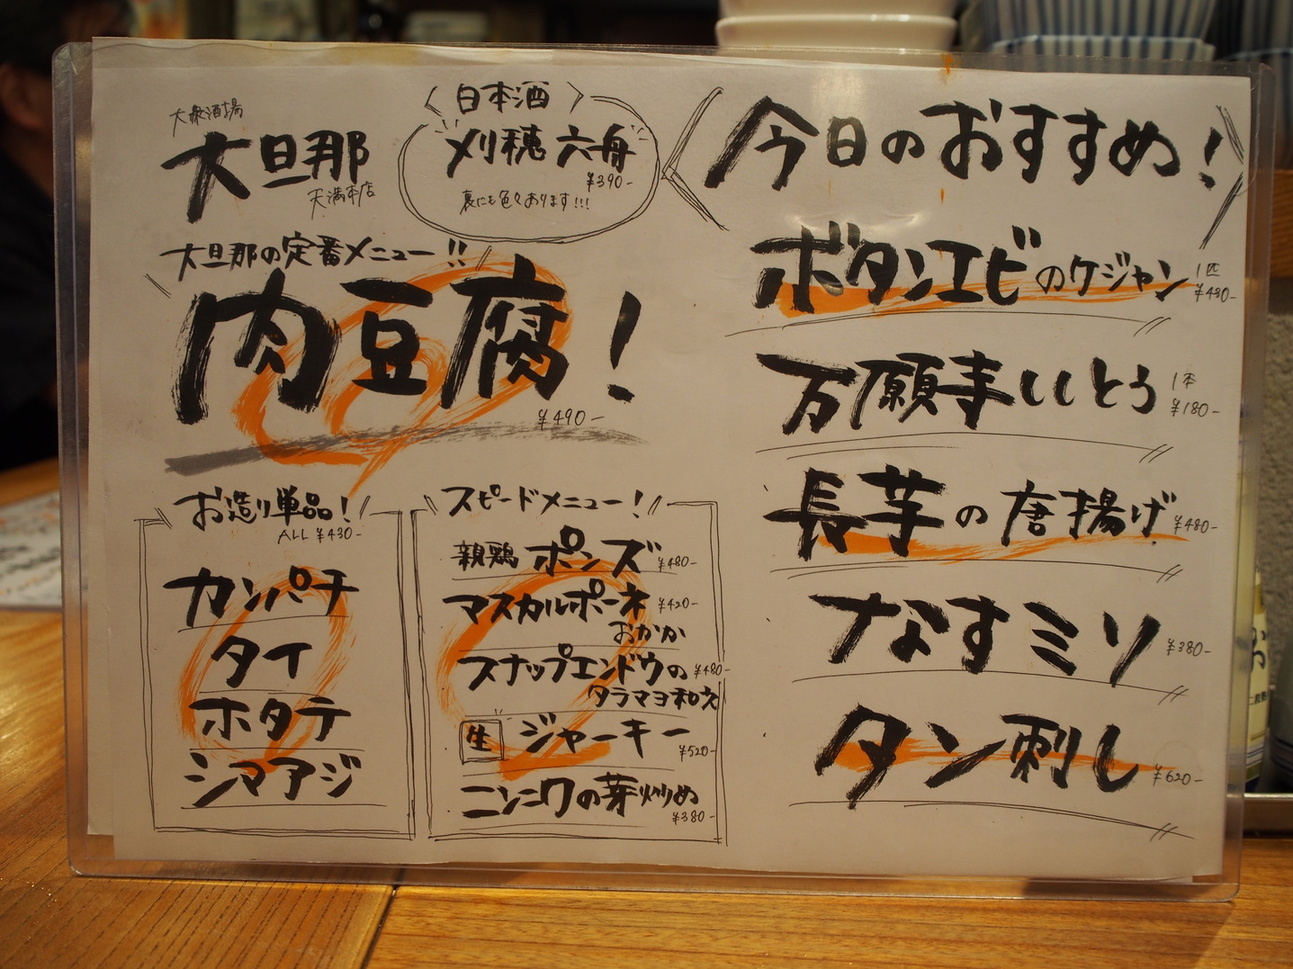 大衆酒場
大旦那
天満本店
日本酒
刈穂 六舟
¥390-
裏にも色々あります!!!
大旦那の定番メニュー!!
肉豆腐!
¥490-
お造り単品!
ALL ¥430-
カンパチ
タイ
ホタテ
シマアジ
スピードメニュー!
親鶏 ポンズ ¥480-
マスカルポーネ ¥420-
おかか
スナップエンドウの ¥480-
タラマヨ和え
生 ジャーキー
¥520-
ニンニクの芽炒め
¥380-
今日のおすすめ!
ボタンエビのケジャン 1匹 ¥480-
万願寺ししとう 1本 ¥180-
長芋の唐揚げ ¥480-
なすミソ ¥380-
タン刺し ¥620-